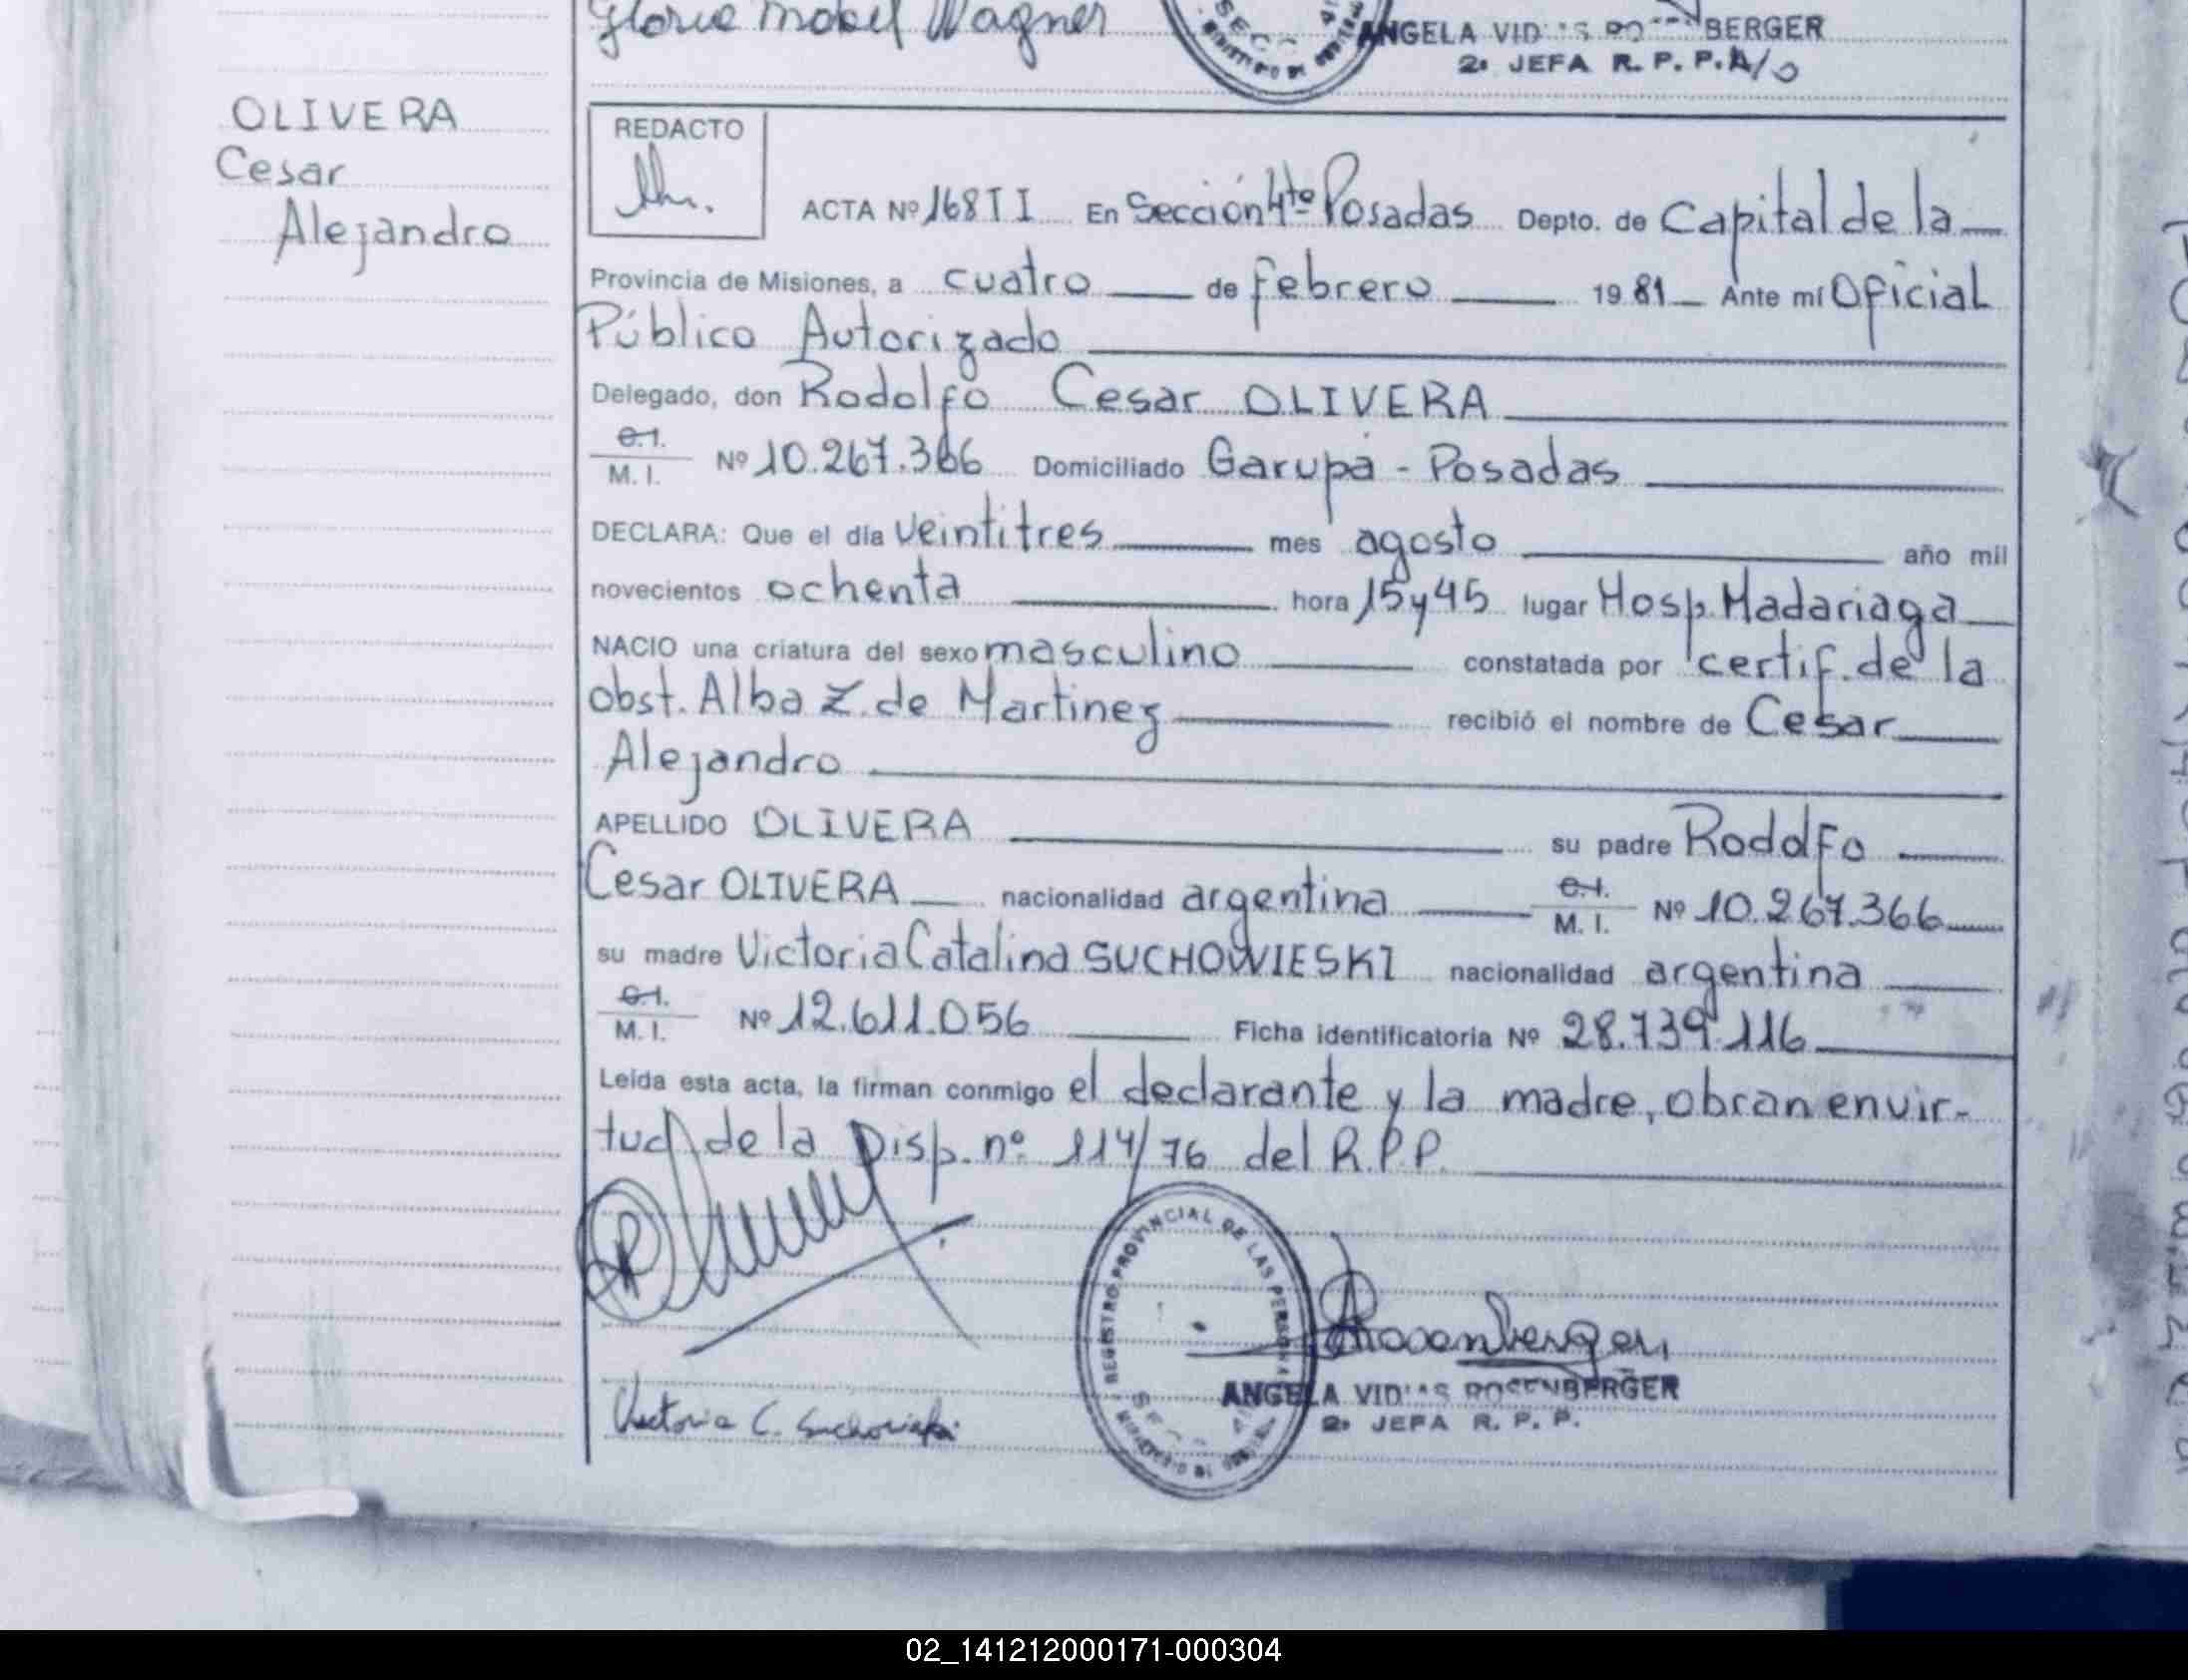 Gloria Mabel Wagner
ANGELA VID BERGER
2º JEFA R. P. P. A/O
OLIVERA
Cesar
Alejandro
REDACTO
ACTA Nº 168 TI En Sección 4tº Posadas Depto. de Capital de la
Provincia de Misiones, a cuatro de febrero 1981 Ante mí Oficial
Público Autorizado
Delegado, don Rodolfo Cesar OLIVERA
C.I.
M. I. Nº 10.267.366 Domiciliado Garupa - Posadas
DECLARA: Que el día veintitres mes agosto año mil
novecientos ochenta hora 15 y 45 lugar Hosp. Madariaga
NACIO una criatura del sexo masculino constatada por certif. de la
obst. Alba Z. de Martinez recibió el nombre de Cesar
Alejandro
APELLIDO OLIVERA su padre Rodolfo
Cesar OLIVERA nacionalidad argentina C.I. M. I. Nº 10.267.366
su madre Victoria Catalina SUCHOWIESKI nacionalidad argentina
C.I.
M. I. Nº 12.611.056 Ficha identificatoria Nº 28.739.116
Leída esta acta, la firman conmigo el declarante y la madre, obran en vir-
tud de la Disp. nº 114/76 del R.P.P.
REGISTRO PROVINCIAL DE LAS PERSONAS
Rosenberger
ANGELA VID AS ROSENBERGER
2º JEFA R. P. P.
Victoria C. Suchowieski
02_141212000171-000304